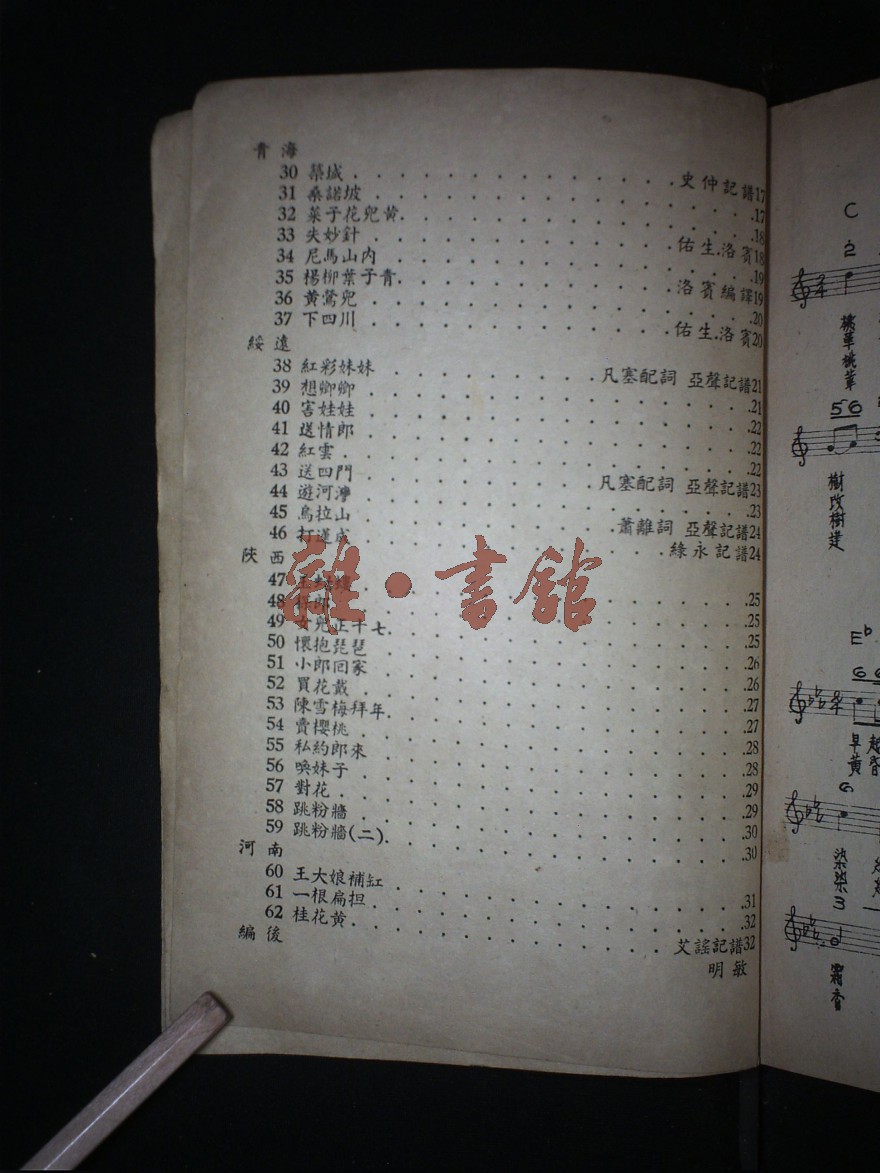 青海
30 築城 史仲記譜17
31 桑諾坡 17
32 菜子花兒黄 18
33 失妙針 佑生.洛賓18
34 尼馬山内 19
35 楊柳葉子青 洛賓編譯19
36 黄鶯兒 20
37 下四川 佑生.洛賓20
綏遠
38 紅彩妹妹 凡塞配詞 亞聲記譜21
39 想卿卿 21
40 害娃娃 22
41 送情郎 22
42 紅雲 22
43 送四門 凡塞配詞 亞聲記譜23
44 遊河灣 23
45 烏拉山 蕭離詞 亞聲記譜24
46 打蓮成 綠永記譜24
陝西
47 25
48 25
49 女兒正十七 25
50 懷抱琵琶 26
51 小郎回家 26
52 買花戴 27
53 陳雪梅拜年 27
54 賣櫻桃 28
55 私約郎來 28
56 喚妹子 29
57 對花 29
58 跳粉牆 30
59 跳粉牆(二) 30
河南
60 王大娘補缸 31
61 一根扁担 32
62 桂花黄 艾謠記譜32
編後 明敏
雜·書館
C
2
桃華桃華
56
樹改樹建
E♭
66
早
黄
6
染染
3
霜香